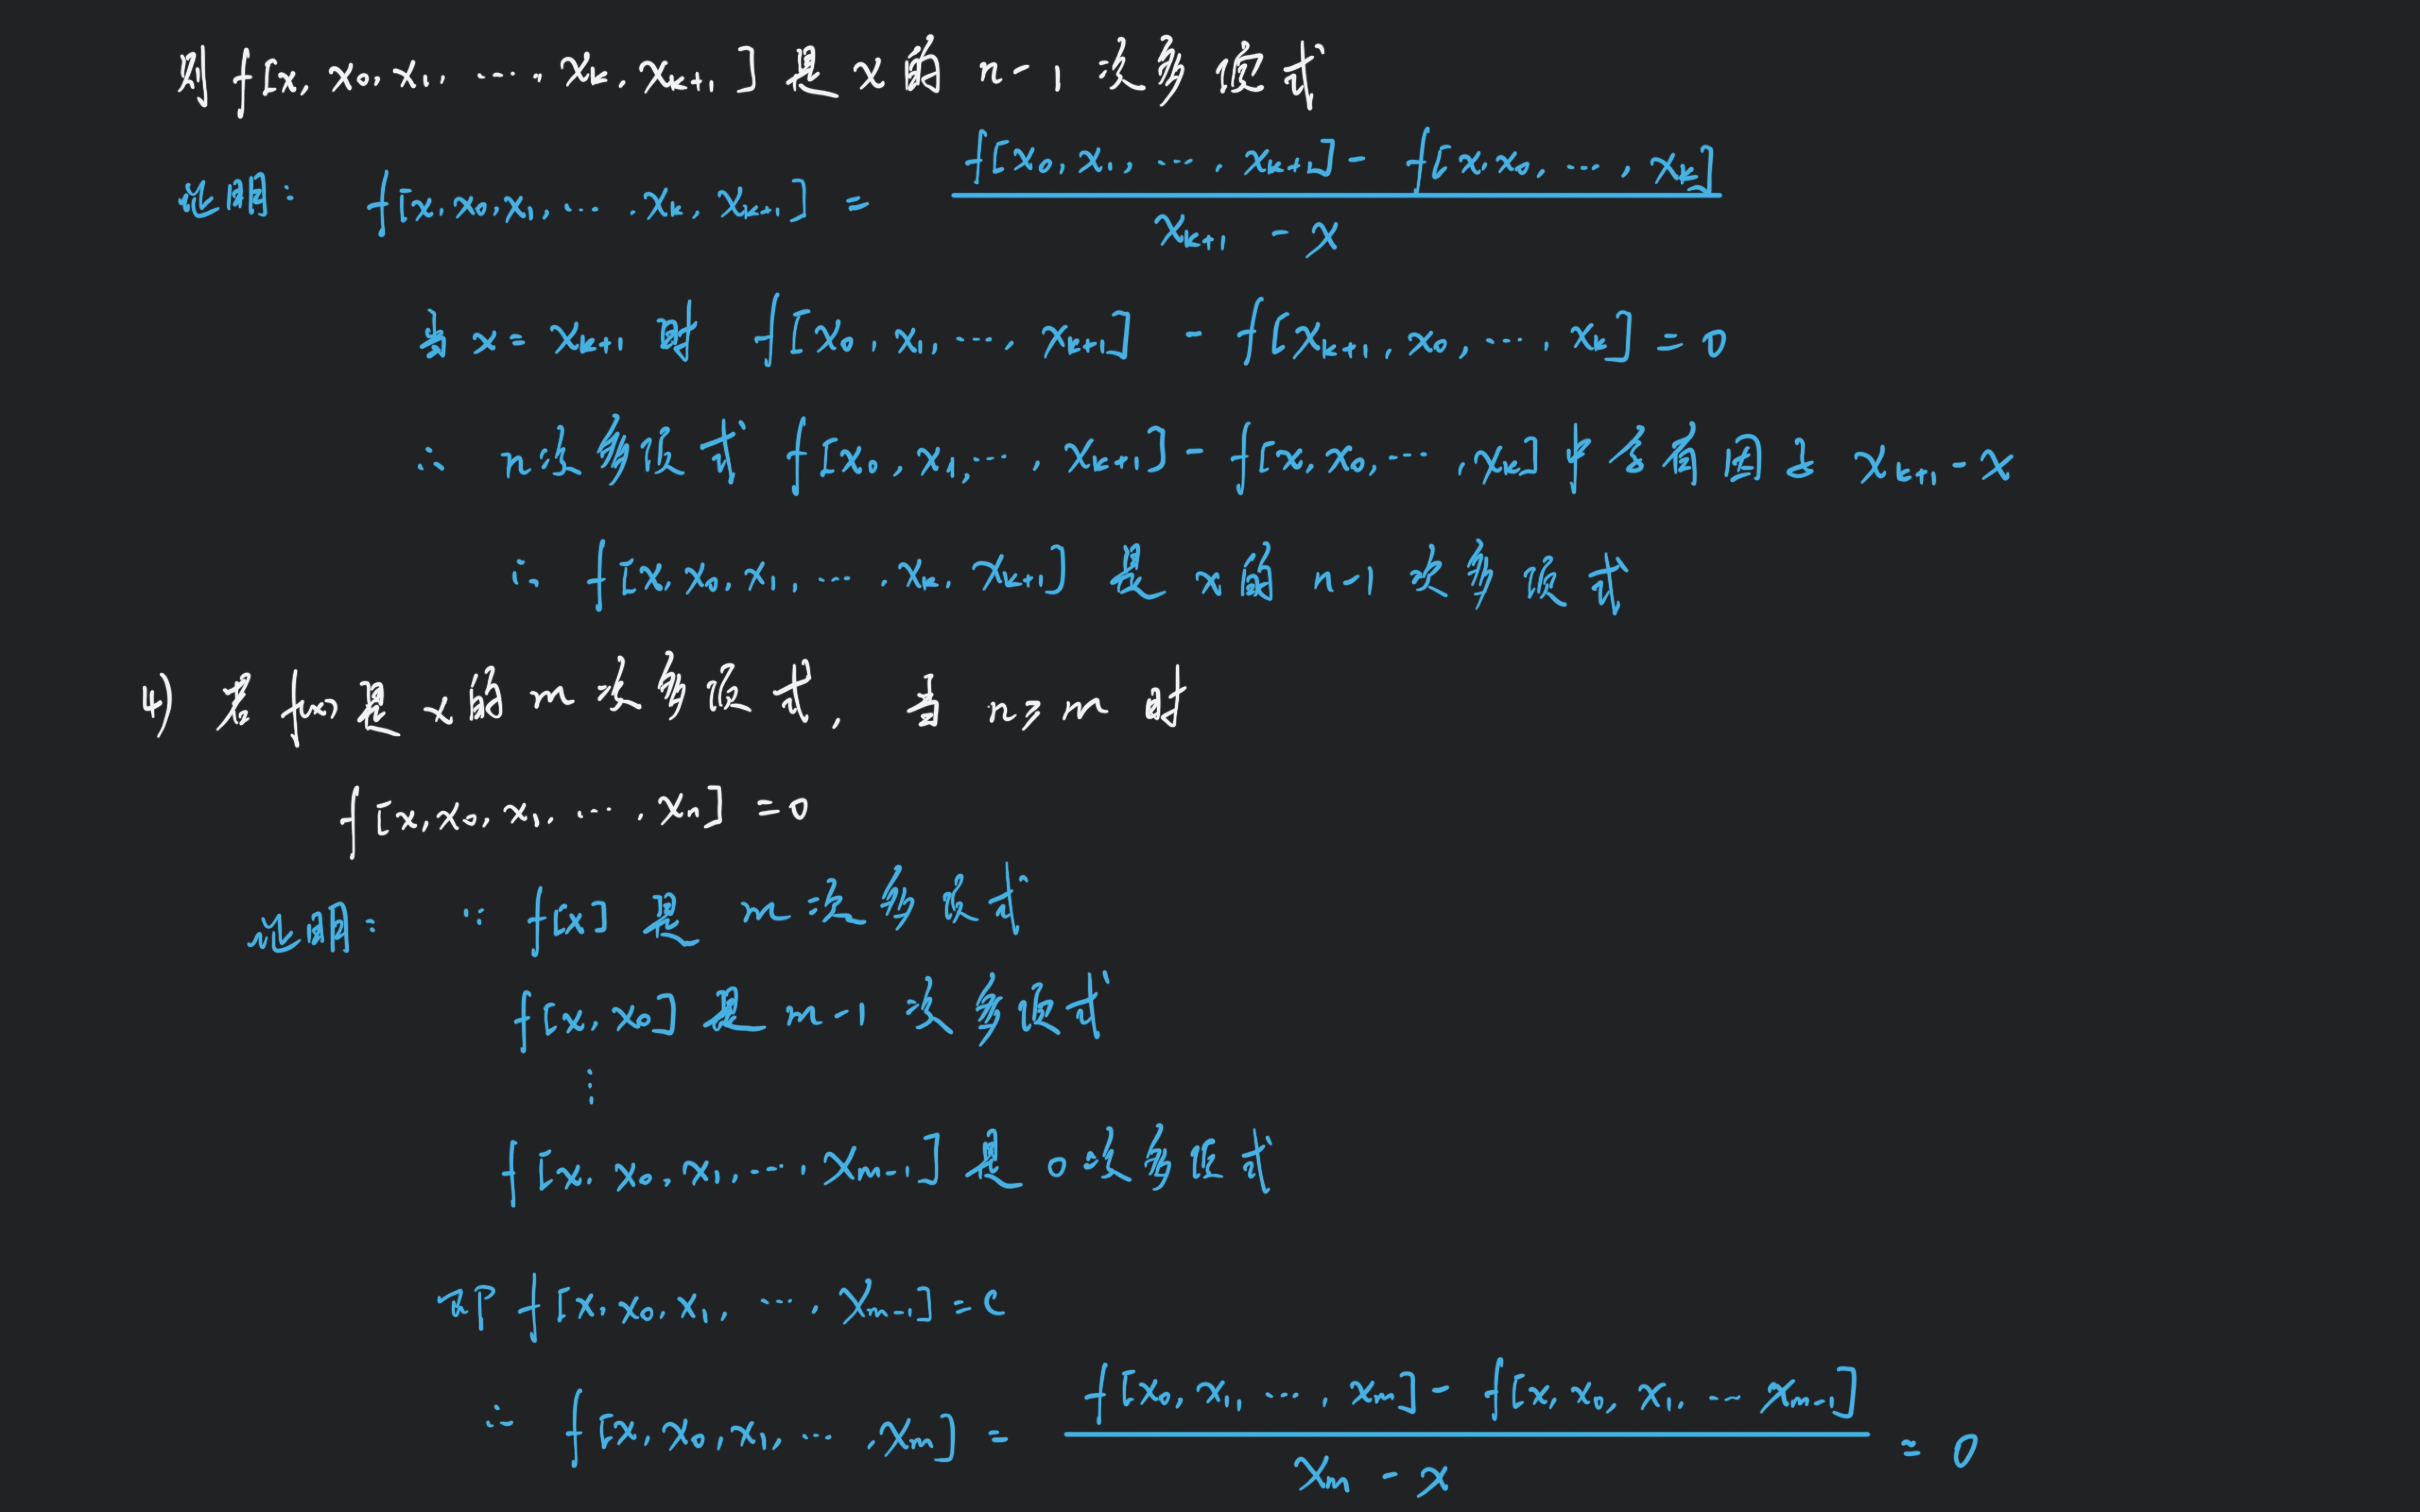 则 f[x, x₀, x₁, ⋯, xₖ, xₖ₊₁] 是 x 的 n-1 次多项式
证明: f[x, x₀, x₁, ⋯, xₖ, xₖ₊₁] = (f[x₀, x₁, ⋯, xₖ₊₁] - f[x, x₀, ⋯, xₖ]) / (xₖ₊₁ - x)
当 x = xₖ₊₁ 时 f[x₀, x₁, ⋯, xₖ₊₁] - f[xₖ₊₁, x₀, ⋯, xₖ] = 0
∴ n次多项式 f[x₀, x₁, ⋯, xₖ₊₁] - f[x, x₀, ⋯, xₖ] 中含有因子 xₖ₊₁ - x
∴ f[x, x₀, x₁, ⋯, xₖ, xₖ₊₁] 是 x 的 n-1 次多项式
4) 若 f(x) 是 x 的 m 次多项式, 当 n ≥ m 时
f[x, x₀, x₁, ⋯, xₙ] = 0
证明: ∵ f[x] 是 m 次多项式
f[x, x₀] 是 m-1 次多项式
⋮
f[x, x₀, x₁, ⋯, xₘ₋₁] 是 0 次多项式
即 f[x, x₀, x₁, ⋯, xₘ₋₁] = c
∴ f[x, x₀, x₁, ⋯, xₘ] = (f[x₀, x₁, ⋯, xₘ] - f[x, x₀, x₁, ⋯ xₘ₋₁]) / (xₘ - x) = 0